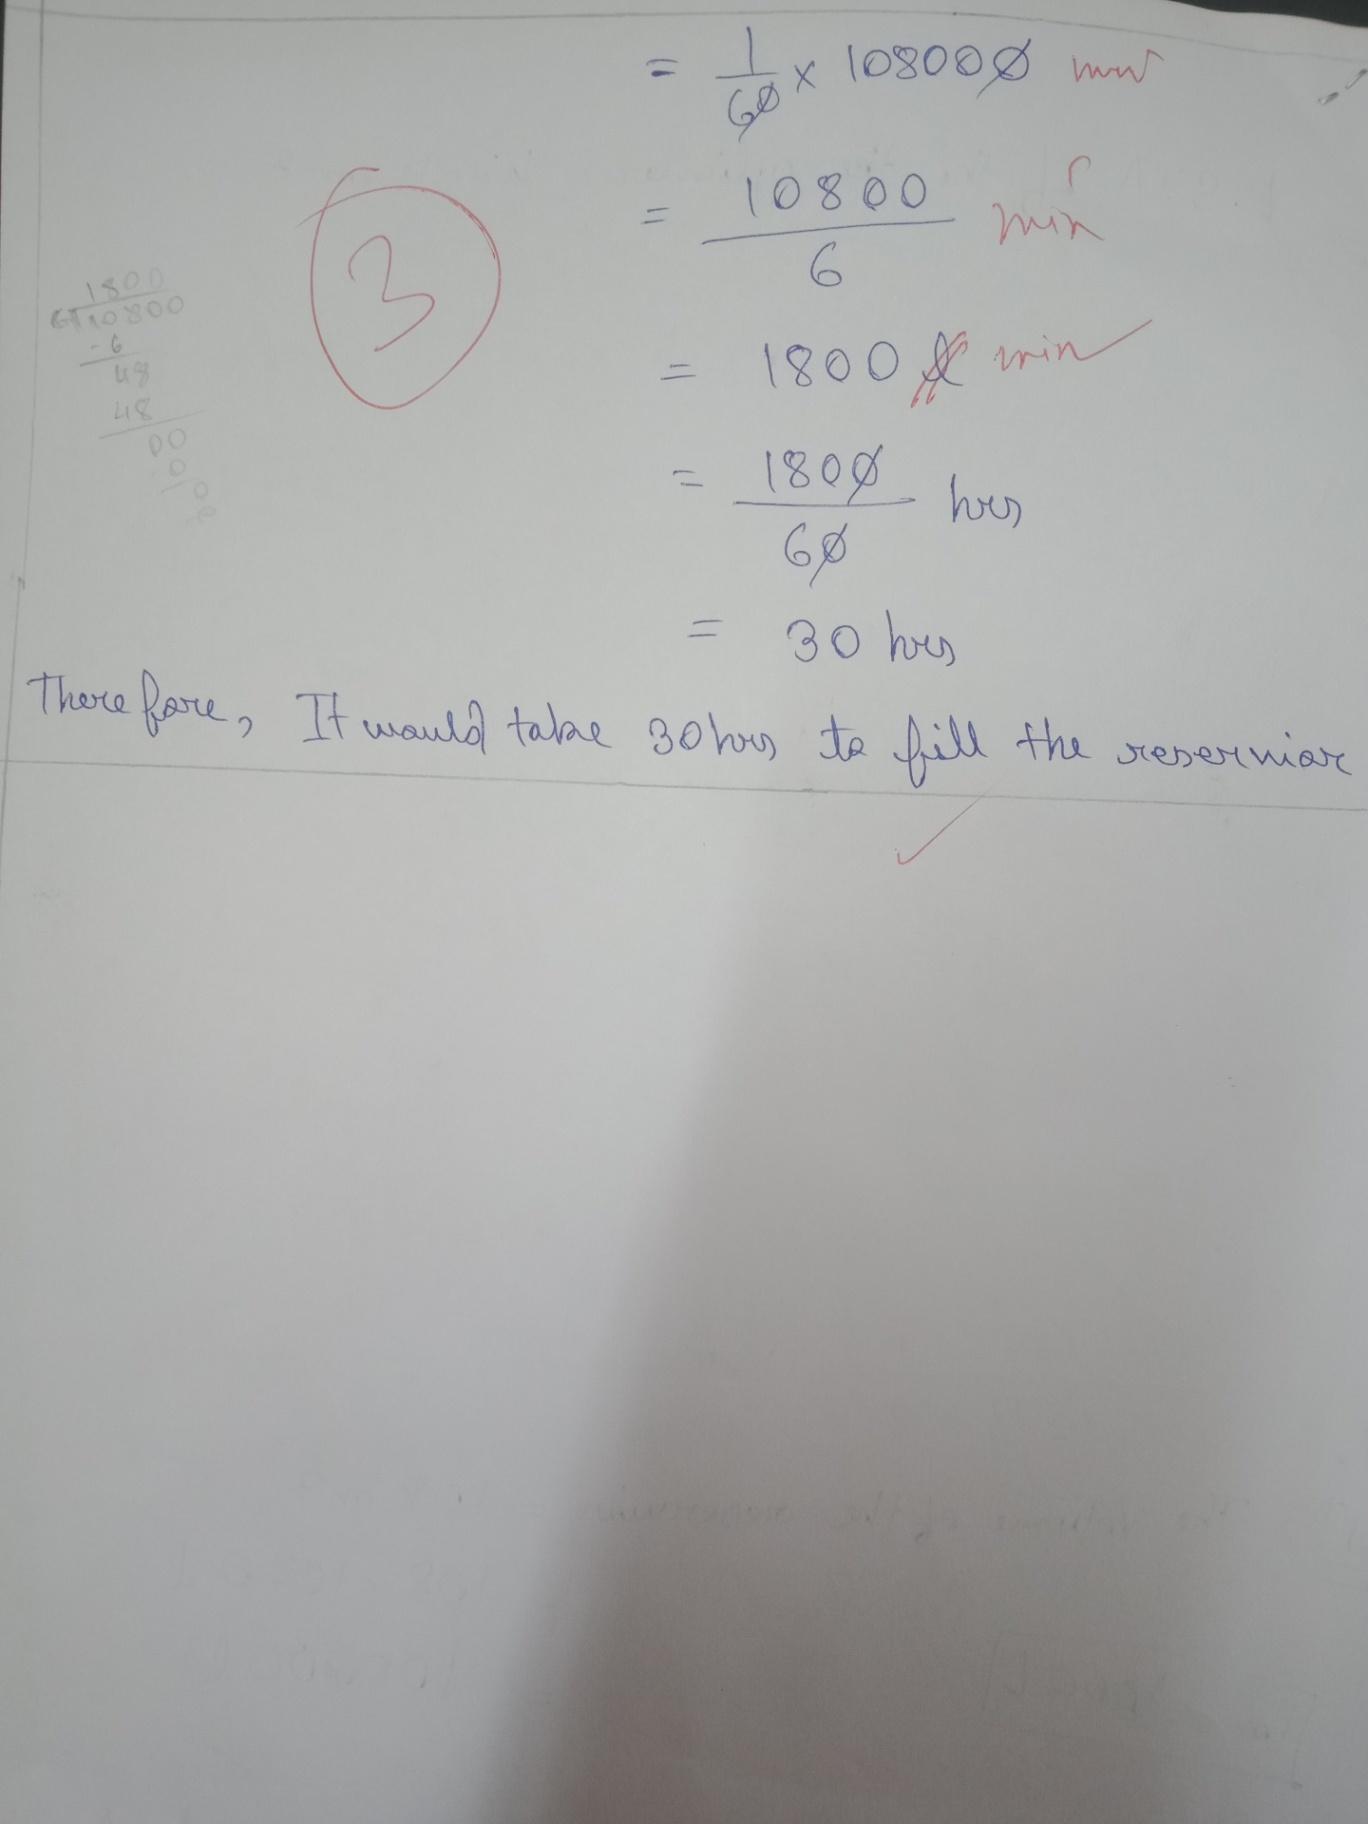 = 1/60 × 108000 min
= 10800/6 min
3
1800
6 10800
-6
48
48
00
0
0
= 1800 l min
= 1800/60 hrs
= 30 hrs
Therefore, It would take 30 hrs to fill the reservior